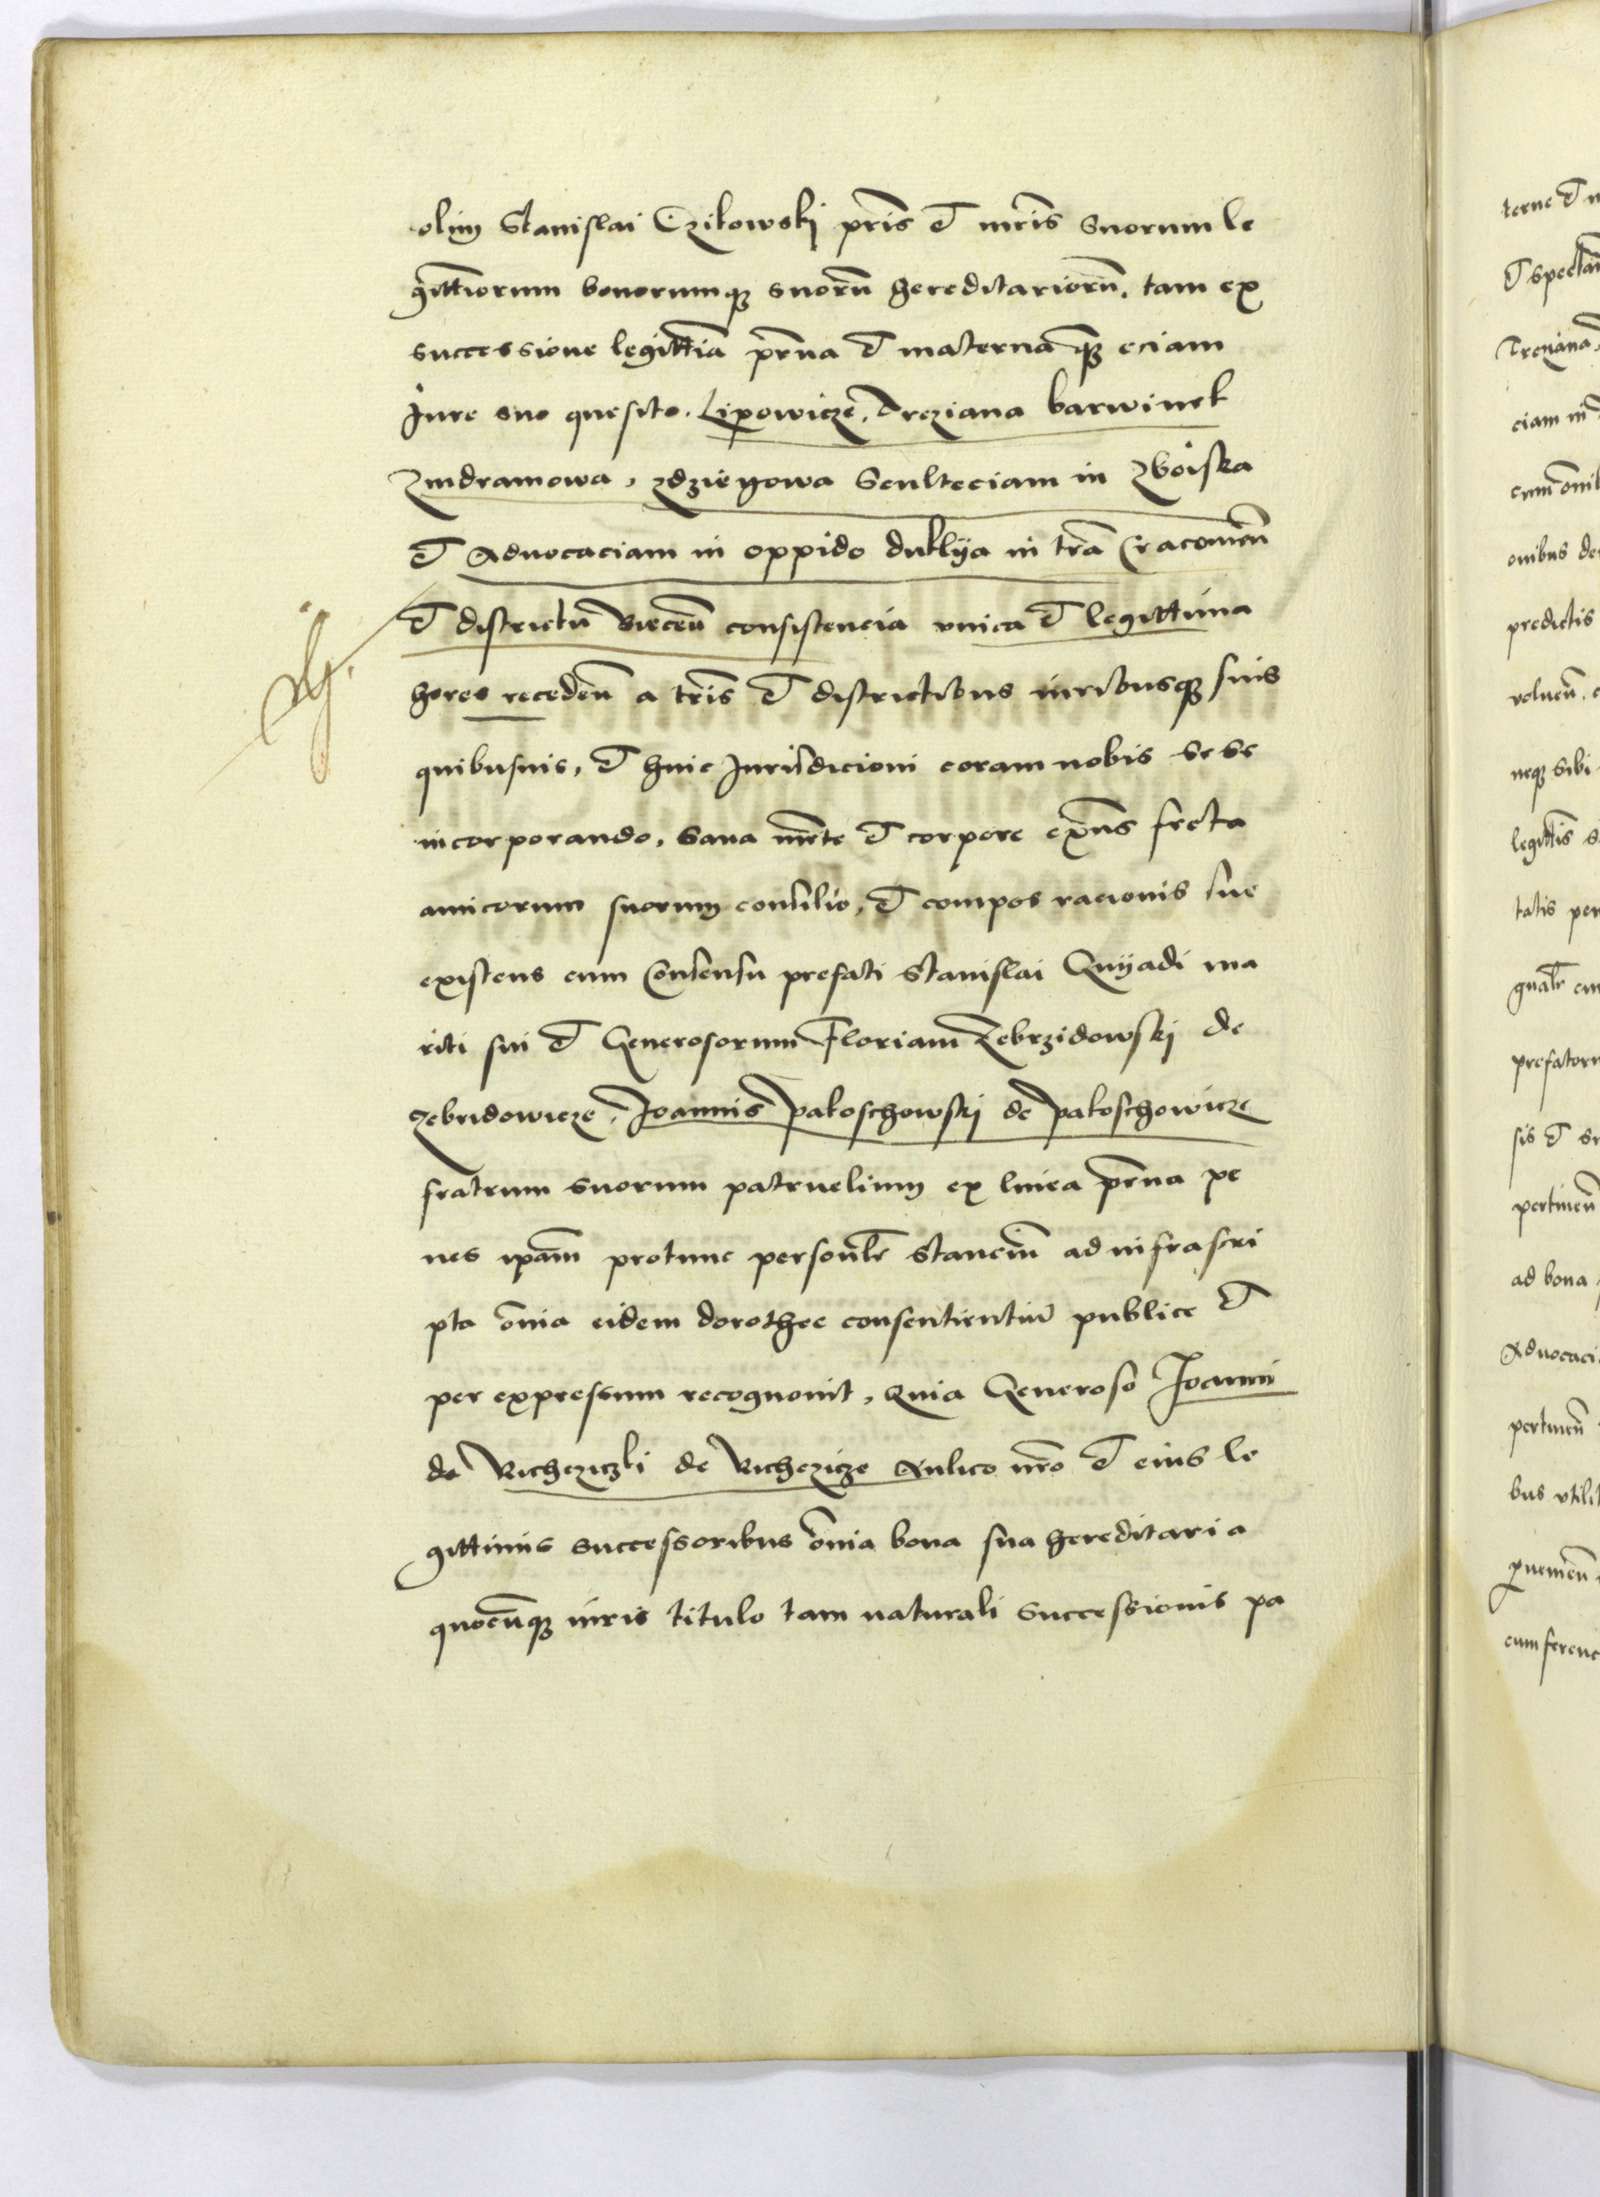 olim Stanislai Czikowski pr̃is et mr̃is suorum le
gittĩorum bonorumqz suorũ hereditariorũ, tam ex
successione legittĩa pr̃na et materna qz̃ eciam
Jure suo quesito. Lipowicze, Treziana barwinek
Zindramowa, zdziegowa Sculteciam in Zboiska
et Aduocaciam in oppido duklya in tr̃a Cracouieñ
et districtũ Bieceñ consistencia vnica et legittima
heres recedeñ a tr̃is et districtibus iuribusqz suis
quibusuis, et huic Jurisdicioni coram nobis sese
incorporando, sana mẽte et corpore exñs freta
amicorum suorum consilio, et compos racionis sue
existens cum Consensu prefati Stanislai Quyadi ma
riti sui et Generosorum Floriani Zebrzidowski de
zebridowicze, Joannis pakoschowski de pakoschowicze
fratrum suorum patruelium ex linea pr̃na pe
nes ip̃am protunc personãlr stanciũ ad infrascri
pta om̃ia eidem dorothee consentientiũ publice et
per expressum recognouit, Quia Generoso Joanni
de Richeziczki de Richezicze Aulico nr̃o et eius le
gittimis successoribus om̃ia bona sua hereditaria
quocũqz iuris titulo tam naturali successionis pa
terne et
et spectañ
Treziana
ciam in
cum om̃ib
onibus de
predictis
volueñ
neqz sibi
legittĩs
tatis per
gñalr cu
prefatoru
sis et su
pertineñ
ad bona
Aduocaci
pertineñ
bus vtili
ꝓuenieñ
cumferenc